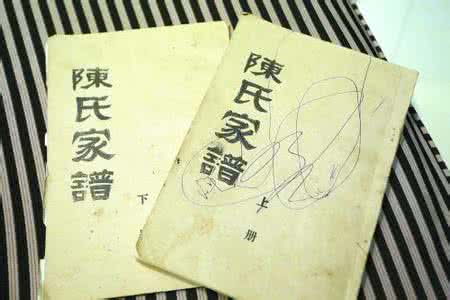 陳氏家譜
下
陳氏家譜
上
册